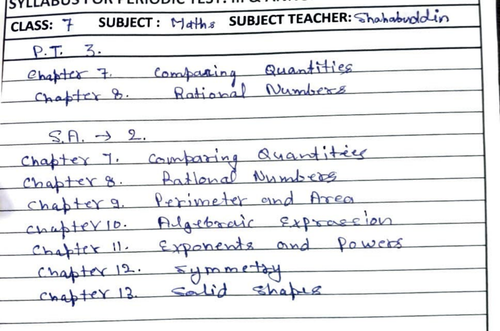 SYLLABUS FOR PERIODIC TEST: III
CLASS: 7 SUBJECT: Maths SUBJECT TEACHER: Shahabuddin
P.T. 3.
Chapter 7. Comparing Quantities
Chapter 8. Rational Numbers
S.A. → 2.
Chapter 7. Comparing Quantities
Chapter 8. Rational Numbers
Chapter 9. Perimeter and Area
Chapter 10. Algebraic Expression
Chapter 11. Exponents and Powers
Chapter 12. Symmetry
Chapter 13. Solid Shapes